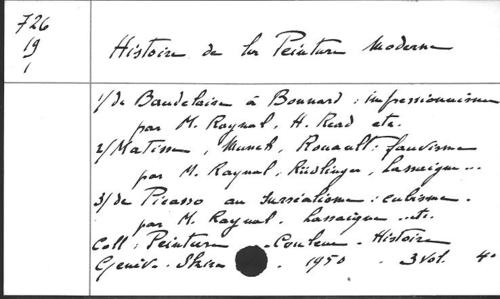 726
19
1
Histoire de la Peinture Moderne
1/ de Baudelaire à Bonnard : impressionnisme
par M. Raynal, H. Read etc.
2/ Matisse, Munch, Rouault : fauvisme
par M. Raynal, Rüdlinger, Lassaigne...
3/ de Picasso au surréalisme : cubisme.
par M. Raynal. Lassaigne ..etc.
Coll : Peinture - Couleur - Histoire
Genève. Skira . 1950 . 3 vol. 4°